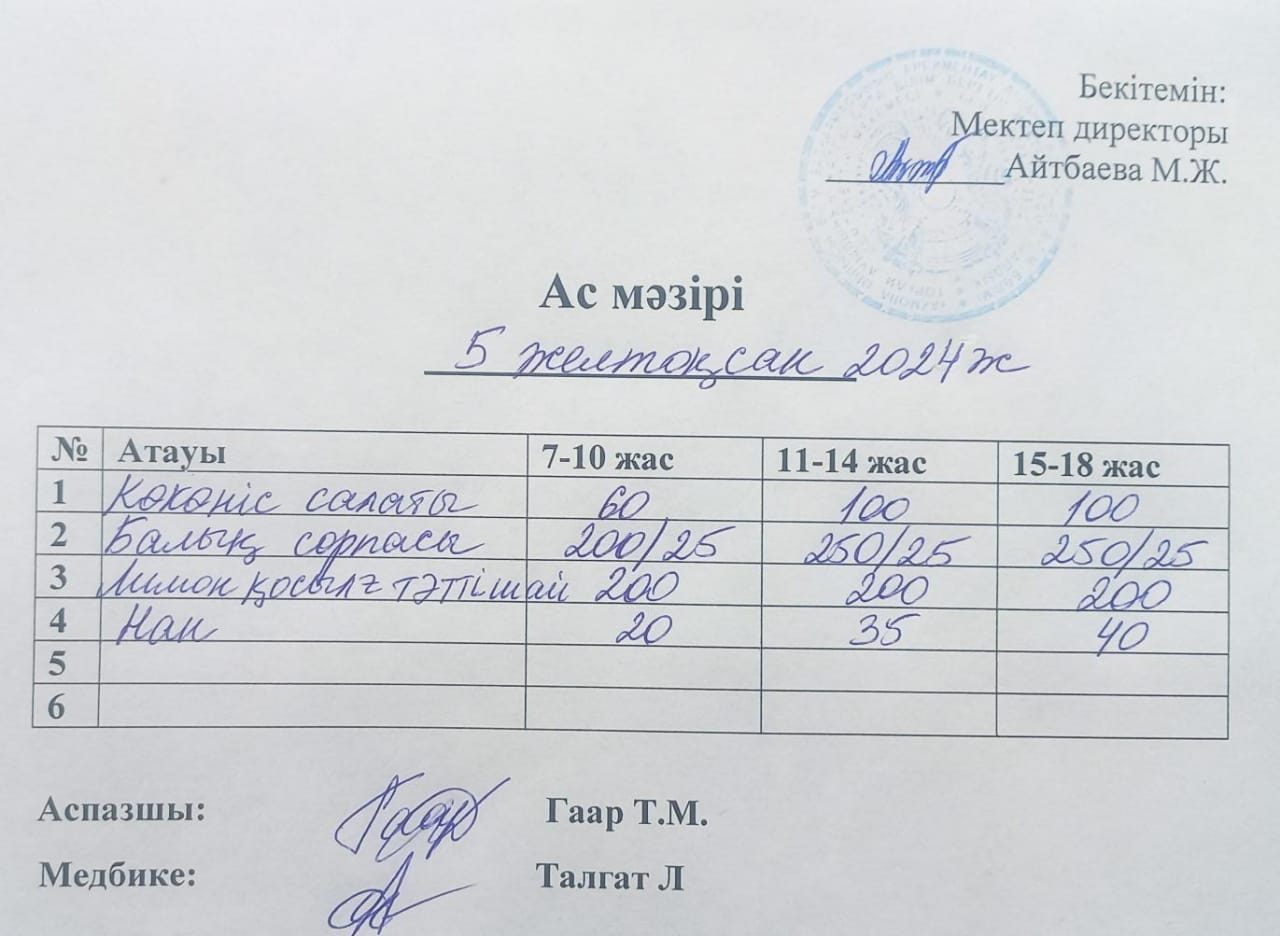 Бекітемін:
Мектеп директоры
Айтбаева М.Ж.
Ас мәзірі
5 желтоқсан 2024ж
№ Атауы 7-10 жас 11-14 жас 15-18 жас
1 Көкөніс салаты 60 100 100
2 Балық сорпасы 200/25 250/25 250/25
3 Лимон қосылғ тәтті шай 200 200 200
4 Нан 20 35 40
5
6
Аспазшы: Гаар Т.М.
Медбике: Талгат Л